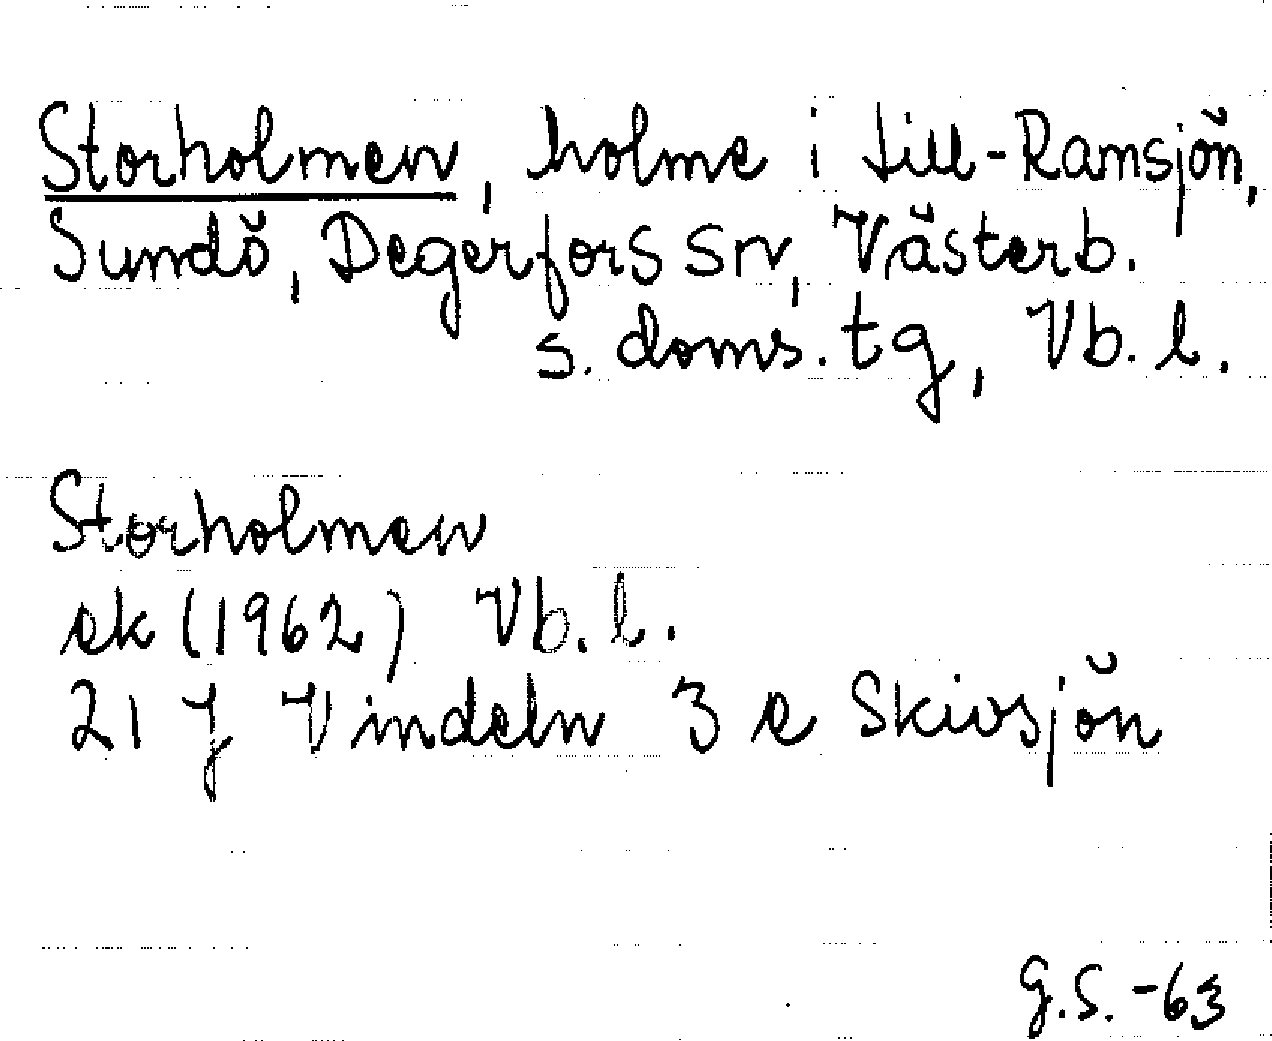 Storholmen, holme i Lill-Ramsjön,
Sundö, Degerfors sn, Västerb.
s. doms. tg, Vb. l.
Storholmen
ek (1962) Vb. l.
21 J Vindeln 3 e Skivsjön
G.S. -63